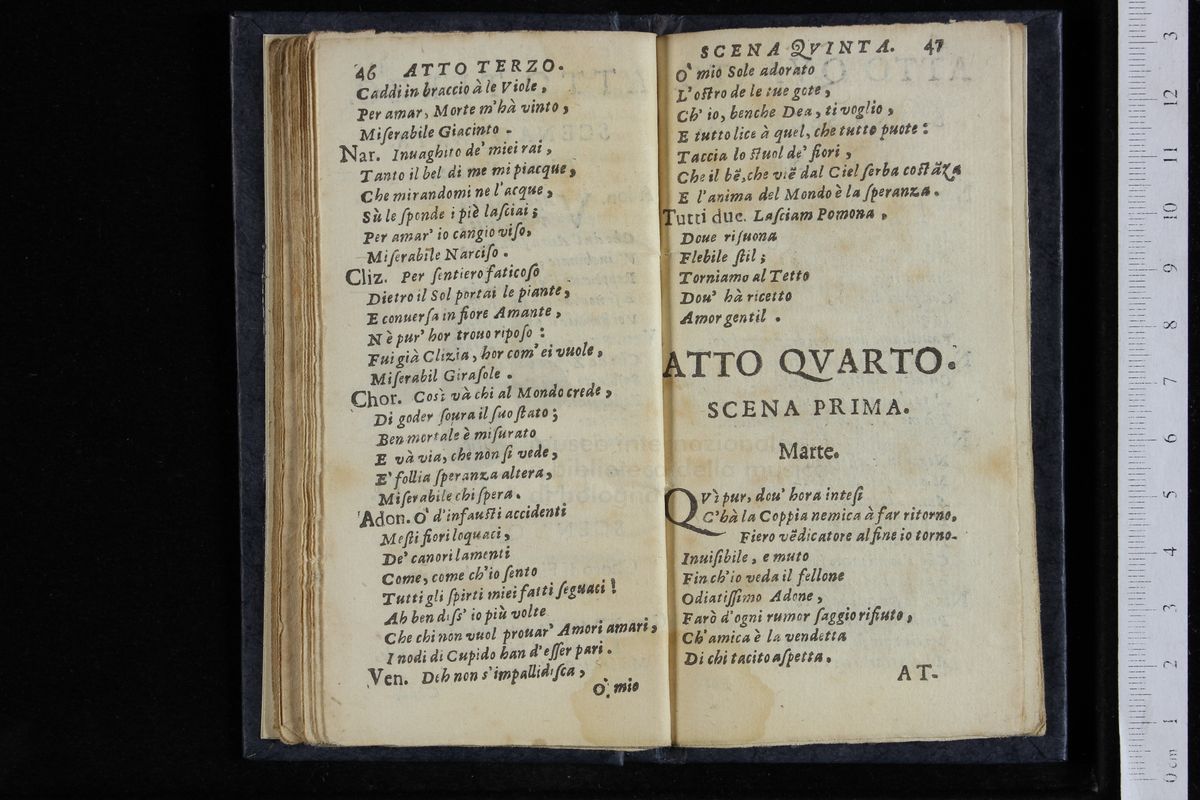 46 ATTO TERZO.
Caddi in braccio à le Viole,
Per amar, Morte m'hà vinto,
Miſerabile Giacinto.
Nar. Inuaghito de' miei rai,
Tanto il bel di me mi piacque,
Che mirandomi ne l'acque,
Sù le ſponde i piè laſciai;
Per amar' io cangio viſo,
Miſerabile Narciſo.
Cliz. Per ſentiero faticoſo
Dietro il Sol portai le piante,
E conuerſa in fiore Amante,
Nè pur' hor trouo ripoſo:
Fui già Clizia, hor com' ei vuole,
Miſerabil Giraſole.
Chor. Così và chi al Mondo crede,
Di goder ſoura il ſuo ſtato;
Ben mortale è miſurato
E và via, che non ſi vede,
E' follia ſperanza altera,
Miſerabile chi ſpera.
Adon. O' d'infauſti accidenti
Meſti fiori loquaci,
De' canori lamenti
Come, come ch'io ſento
Tutti gli ſpirti miei fatti ſeguaci!
Ah ben diſs' io più volte
Che chi non vuol prouar' Amori amari,
I nodi di Cupido han d'eſſer pari.
Ven. Deh non s'impallidiſca,
O' mio
SCENA QVINTA. 47
O' mio Sole adorato
L'oſtro de le tue gote,
Ch' io, benche Dea, ti voglio,
E tutto lice à quel, che tutto puote:
Taccia lo ſtuol de' fiori,
Che il bẽ, che viẽ dal Ciel ſerba coſtãza
E l'anima del Mondo è la ſperanza.
Tutti due. Laſciam Pomona,
Doue riſuona
Flebile ſtil;
Torniamo al Tetto
Dou' hà ricetto
Amor gentil.
ATTO QVARTO.
SCENA PRIMA.
Marte.
QVì pur, dou' hora inteſi
C'hà la Coppia nemica à far ritorno,
Fiero vẽdicatore al fine io torno.
Inuiſibile, e muto
Finch'io veda il fellone
Odiatiſſimo Adone,
Farò d'ogni rumor ſaggio rifiuto,
Ch'amica è la vendetta
Di chi tacito aſpetta.
AT-
museo internazionale
e biblioteca della musica
di bologna
3
12
11
10
9
8
7
6
5
4
3
2
1
0 cm